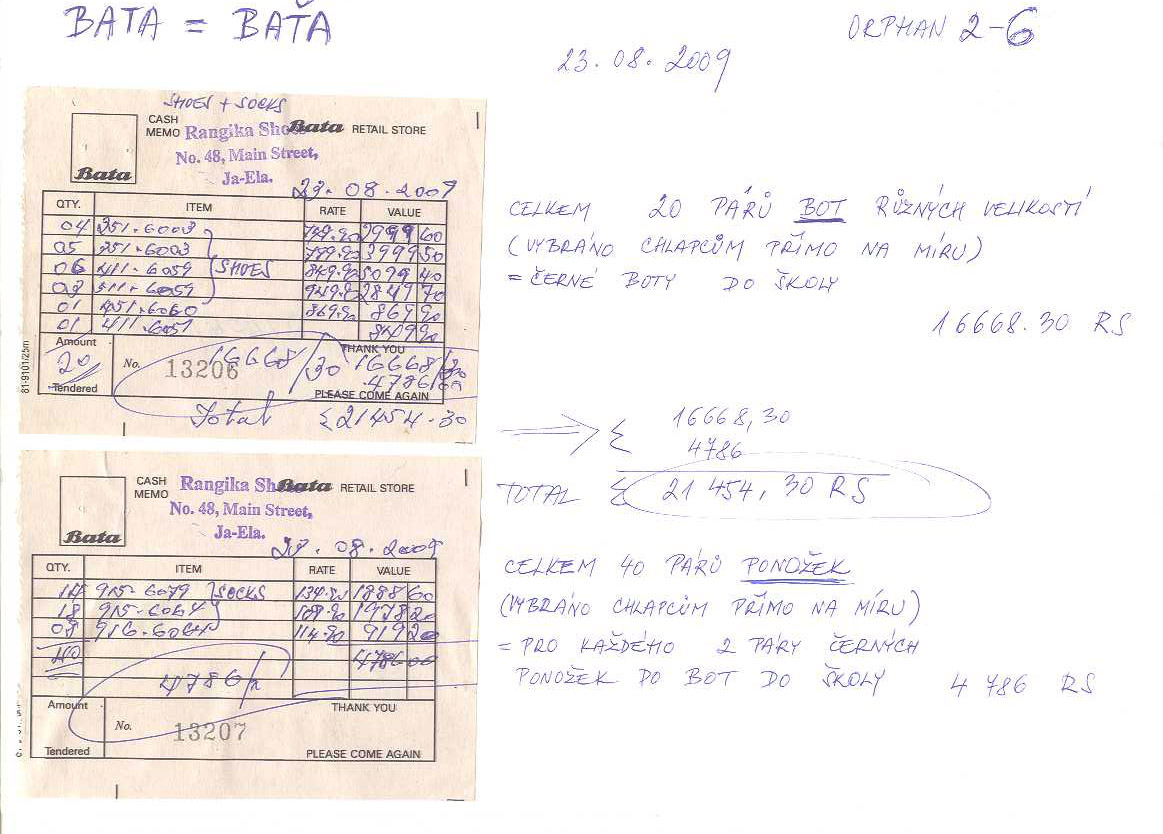 BATA = BAŤA
ORPHAN 2-6
23.08.2009
SHOES + SOCKS
CASH MEMO
Rangika Sho
Bata RETAIL STORE
No. 48, Main Street,
Ja-Ela.
Bata
29.08.2009
QTY. ITEM RATE VALUE
04 351.6003 799.90 60
05 351.6003 SHOES 799.90 3999 50
06 411.6059 849.90 5099 40
511.6059 949.90 2849 70
01 451.6060 869.90 869 90
01 411.6051
Amount THANK YOU
20 No. 13206 16668/30 16668/30
4786/00
Tendered PLEASE COME AGAIN
Total Σ21454.30
81-9101/25m
CELKEM 20 PÁRŮ BOT RŮZNÝCH VELIKOSTÍ
(VYBRÁNO CHLAPCŮM PŘÍMO NA MÍRU)
= ČERNÉ BOTY DO ŠKOLY
16668.30 RS
Σ 16668,30
4786
TOTAL Σ 21 454,30 RS
CASH MEMO
Rangika Sh
Bata RETAIL STORE
No. 48, Main Street,
Ja-Ela.
Bata
29.08.2009
QTY. ITEM RATE VALUE
14 915-6079 SOCKS 134.90 1888 60
18 915-6064 109.90 1978 20
08 916.6064 114.90 919 20
40 4786 00
4786/
Amount THANK YOU
No. 13207
Tendered PLEASE COME AGAIN
CELKEM 40 PÁRŮ PONOŽEK
(VYBRÁNO CHLAPCŮM PŘÍMO NA MÍRU)
= PRO KAŽDÉHO 2 PÁRY ČERNÝCH
PONOŽEK DO BOT DO ŠKOLY 4 786 RS